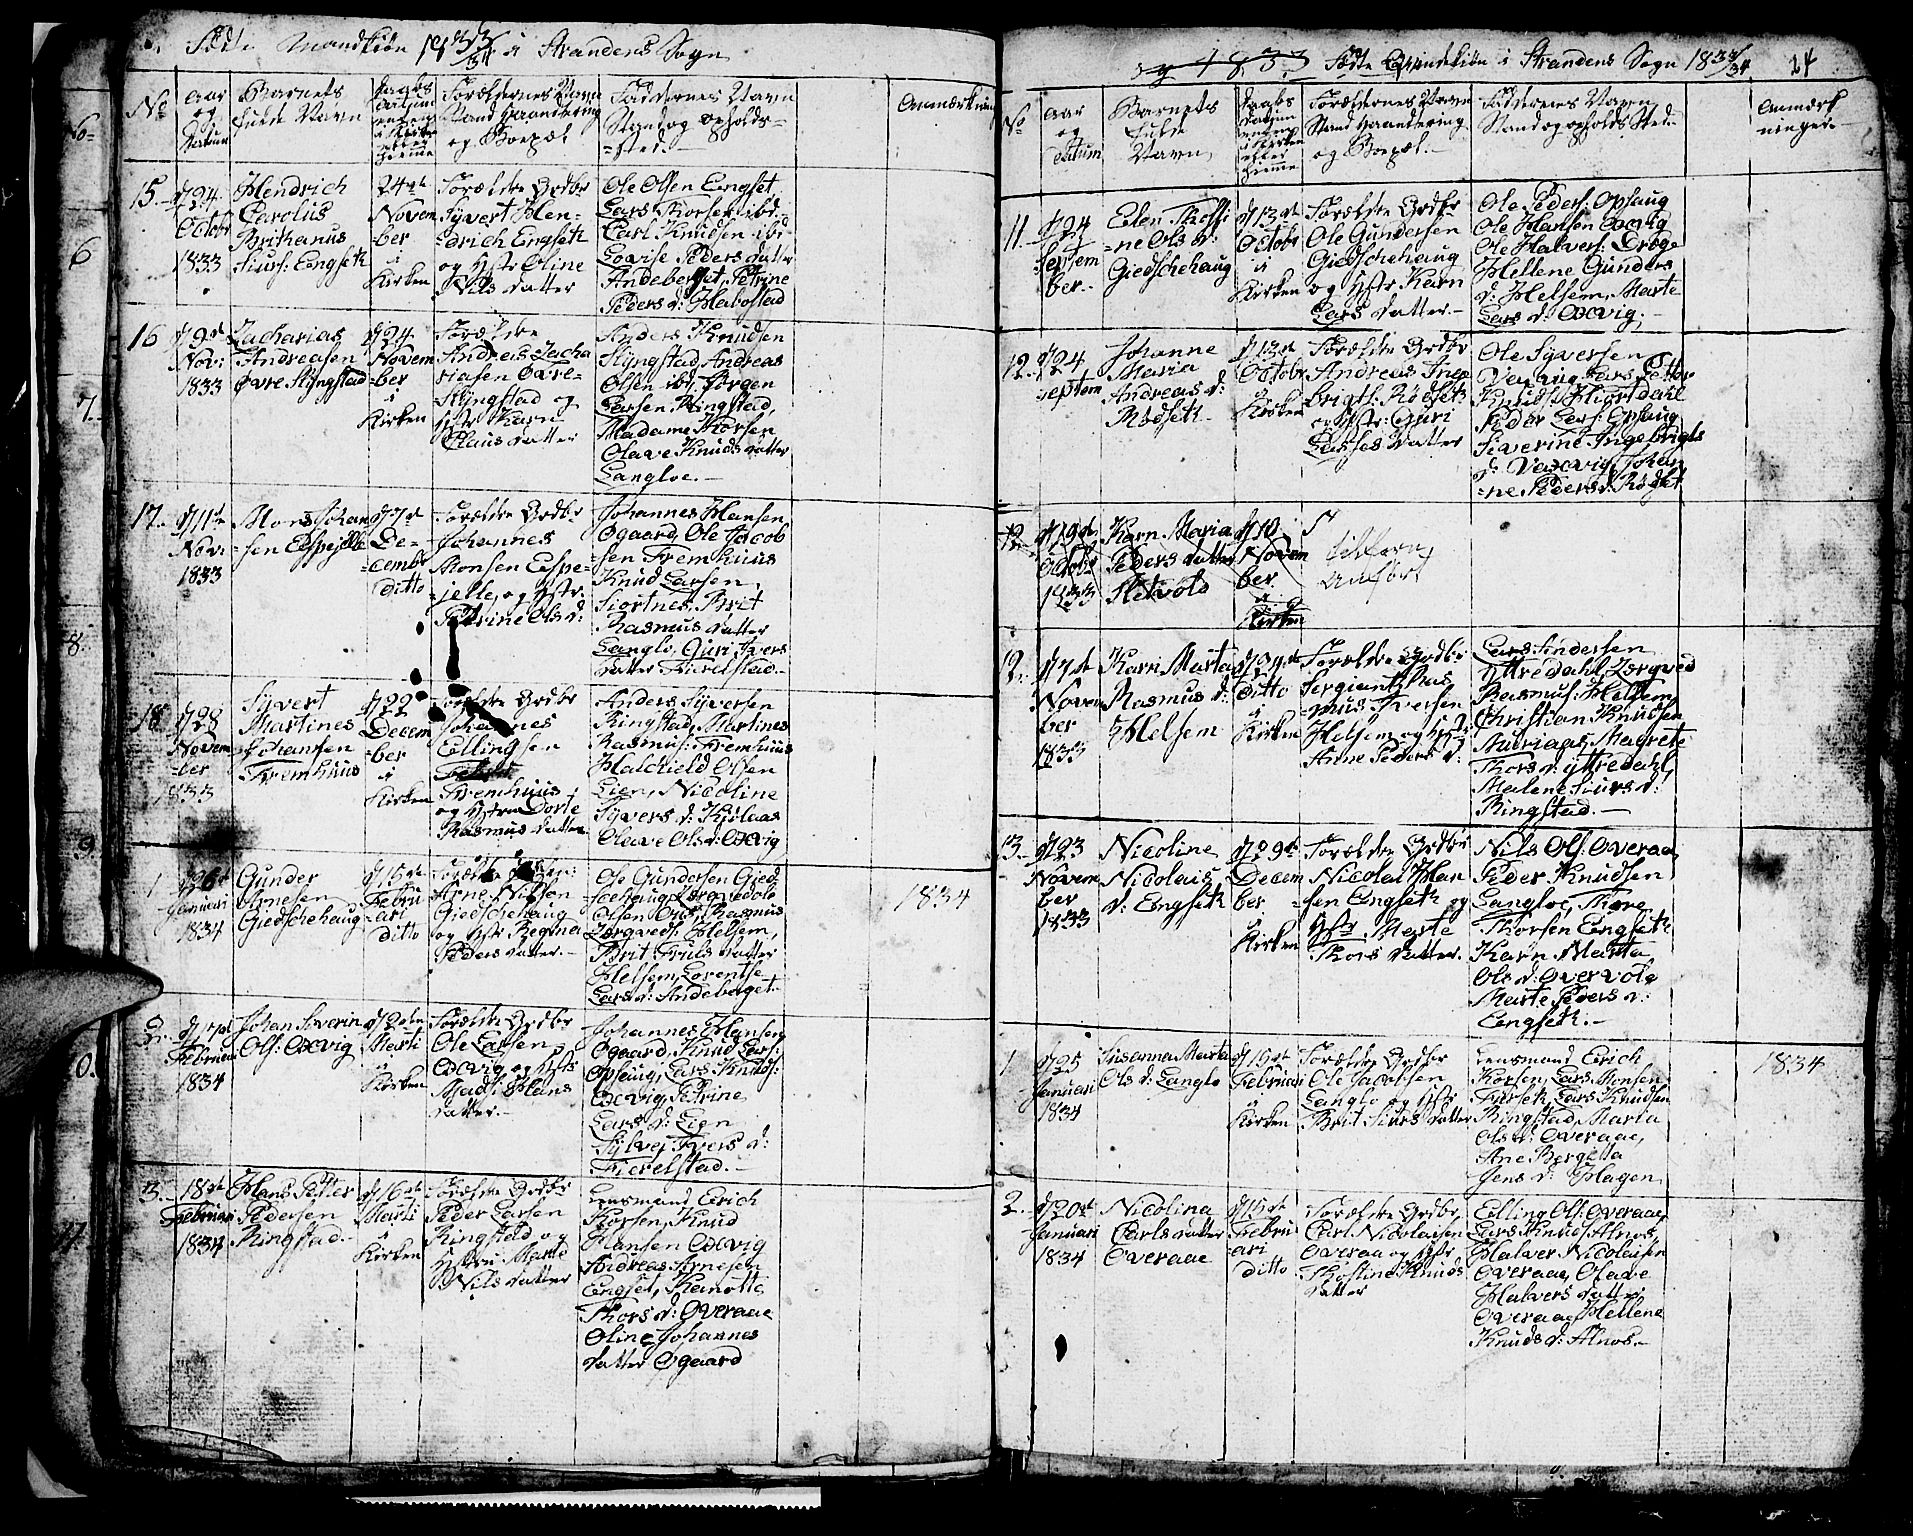 Födte Mandkiön 1833/34 i Strandens Sogn
No
aar
og
datum
Barnets
fulde Navn
Daabs
datum
enten
i Kirke
eller
hiemme
Forældernes Navn
Stand Haandtering
og Boepæl
Faddernes Navn
Stand og opholds-
=sted.-
Anmærkning
15.
d/24
Octobr
1833
Hendrich
Carolus
Brithanus
Siurs: Engseth
24de
Novem
-ber
i
Kirken
Forældre Grdbr
Syvert Hen-
=drich Engseth
og Hstr Oline
Nils datter
Ole Olsen Engset
Lars Thorsen ibd.
Carl Knudsen ibd
Lovise Peders datter
Andeberget, Petrine
Peders d: Habostad
16
d/9de
Nov:
1833
Zacharias
Andreasen
Øvre Slyngstad
d/24
Novem
=ber
i
Kirken
Forældre
Andreas Zacha
riasen Øvre-
Slyngstad og
Hstr Karn
Claus datter
Anders Knudsen
Slyngstad, Andreas
Olsen ibd, Jørgen
Larsen Ringstad,
Madame Thorsen
Olave Knuds datter
Langloe.-
17.
d/11te
Nov:
1833
Mons Johan
-sen Espejelle
d/7de
De-
=cembr
ditto
Forældre Grdbr
Johannes
Monsen Espe-
-jelle, og Hstr.
Petrine Ols d:
Johannes Hansen
Øgaard, Ole Jacob
=sen Fremhuus
Knud Larsen
Siortnes, Brit
Rasmus datter
Langlo, Guri Ivers
datter Fierelstad.-
18
d/28
Novem
-ber
1833
Syvert
Martines
Johansen
Fremhuus
d/22
Decem
ber
i
Kirken
Forældre Grdbr
Johannes
Ellingsen
Fremhuus
og Hstru Dorte
Rasmus datter
Anders Syversen
Ringstad, Martines
Rasmus: Fremhuus
Halchield Olsen
Lien, Nicoline
Syvers d: Kiølaas
Olave Ols d: Oxvig
1
d/6te
Januari
1834
Gunder
Arnesen
Giedschehaug
d/15de
Febru
=ari
ditto
Arne Nilsen
Giedschehaug
og Hstr Regina
Peders datter.-
Ole Gundersen Gied
Olsen
Rasmus
Helsem,
Brit Truls datter
Helsem, Lorentse
Lars d: Andebaget.-
1834
2.
d/17de
Februari
1834
Johan Siverin
Ols: Oxvig
d/2den
Marti
i
Kirken
Forældre Grdbr
Ole Larsen
Oxvig og Hstr
Mads: Hans
datter.-
Johannes Hansen
Øgaard, Knud Lars:
Opsaug, Lars Knuds:
Oxvig, Petrine
Lars d: Lien
Sylvej Ivers d:
Fierelstad.-
3.
18de
Februari
1834
Hans Petter
Pedersen
Ringstad.-
d/16de
Marti
i
Kirken
Forældre Grdbr
Peder Larsen
Ringstad og
Hstru Marte
Nils datter
Lensmand Erich
Korsen, Knud
Hansen Oxvig
Andreas Arnesen
Engset, Kanutte
Thors d: Overaae
Oline Johannes
datter Øgaard
Födte Qvindekiön i Strandens Sogn 1833/34
24
No
aar
og
datum
Barnets
fulde
Navn
Daabs
datum
enten
i Kirken
eller
hiemme
Forældernes Navn
Stand Haandtering
og Boepæl.-
Faddernes Navn
Stand og opholds Sted.-
Anmærk
ninger.
11.
d/24
Septem
ber.-
Elen Thossi
=ne Ols d:
Giedschehaug
d/13de
Octobr
i
Kirken
Forældre Grdbr
Ole Gundersen
Giedschehaug
og Hstr Karn
Lars datter.-
Ole Peders: Opsaug
Ole Hansen Oxvig
Ole Halvers: Droge
Hellene Gunders
d: Helsem, Marte
Lars d: Oxvig.-
12.
d/24
Septem
Johanne
Maria
Andreas d:
Rødseth
d/13de
Octobr
i
Kirken
Forældre Grdbr
Andreas Inge
brigts: Rødseth
og Hstr: Guri
Lasses datter
Ole Syversen
Petter
Knuds: Hiortdahl
Peder Lars: Opsaug
Siverine Ingebrigts
d: Vaxvig, Johan
=ne Peders d: Rødset
12.
d/19de
Octobr
1833
Karn Maria
Peders datter
Sletvold
d/10
Novem
ber
i
Kirken
tilforn
Anført
12.
d/7de
Novem
ber
1833
Karn Marta
Rasmus d:
Helsem
ditto
i
Kirken
Forældre Grdbr
Sergiant Ras
=mus Iversen
Helsem og Hstr
Anne Peders d:
Lars Andersen
Yttredahl, Jørgved
Rasmus: Helsem
Christian Knudsen
Magrete
Thors d: Yttredahl
Malene Siurs d:
Ringstad.-
13.
d/23
Novem
ber
1833
Nicoline
Nicolais
d: Engseth
d/29de
Decem
ber
i
Kirken
Forældre Grdbr
Nicolai Han
sen Engseth og
Hstr Marte
Thors datter.
Nils Ols: Overaae,
Peder Knudsen
Langloe, Thore
Thorsen Engseth
Karn Marta
Ols d: Overvold
Marte Peders d:
Engseth.-
1
d/25
Januari
1834
Susanna Marta
Ols d: Langlo
d/15de
Februari
i
Kirken
Forældre Grdbr
Ole Jacobsen
Langlo og Hstr
Brit Siurs datter
Lensmand Erich
Korsen, Lars Monsen
Furset, Lars Knudsen
Ringstad, Maria
Ols d: Overaae,
Ane Bergitta
Jens d: Hagen
1834
2.
d/20de
Januari
1834
Nicolina
Carls datter
Overaae
d/15de
Febru
-ari
ditto
Forældre Grdbr,
Carl Nicolaisen
Overaa og Hstr
Thostine Knuds
datter
Elling Ols: Overaae,
Lars Knuds: Alnos,
Halver Nicolaisen
Overaae, Olave
Halvers datter
Overaae, Hellene
Knuds d: Alnos.-